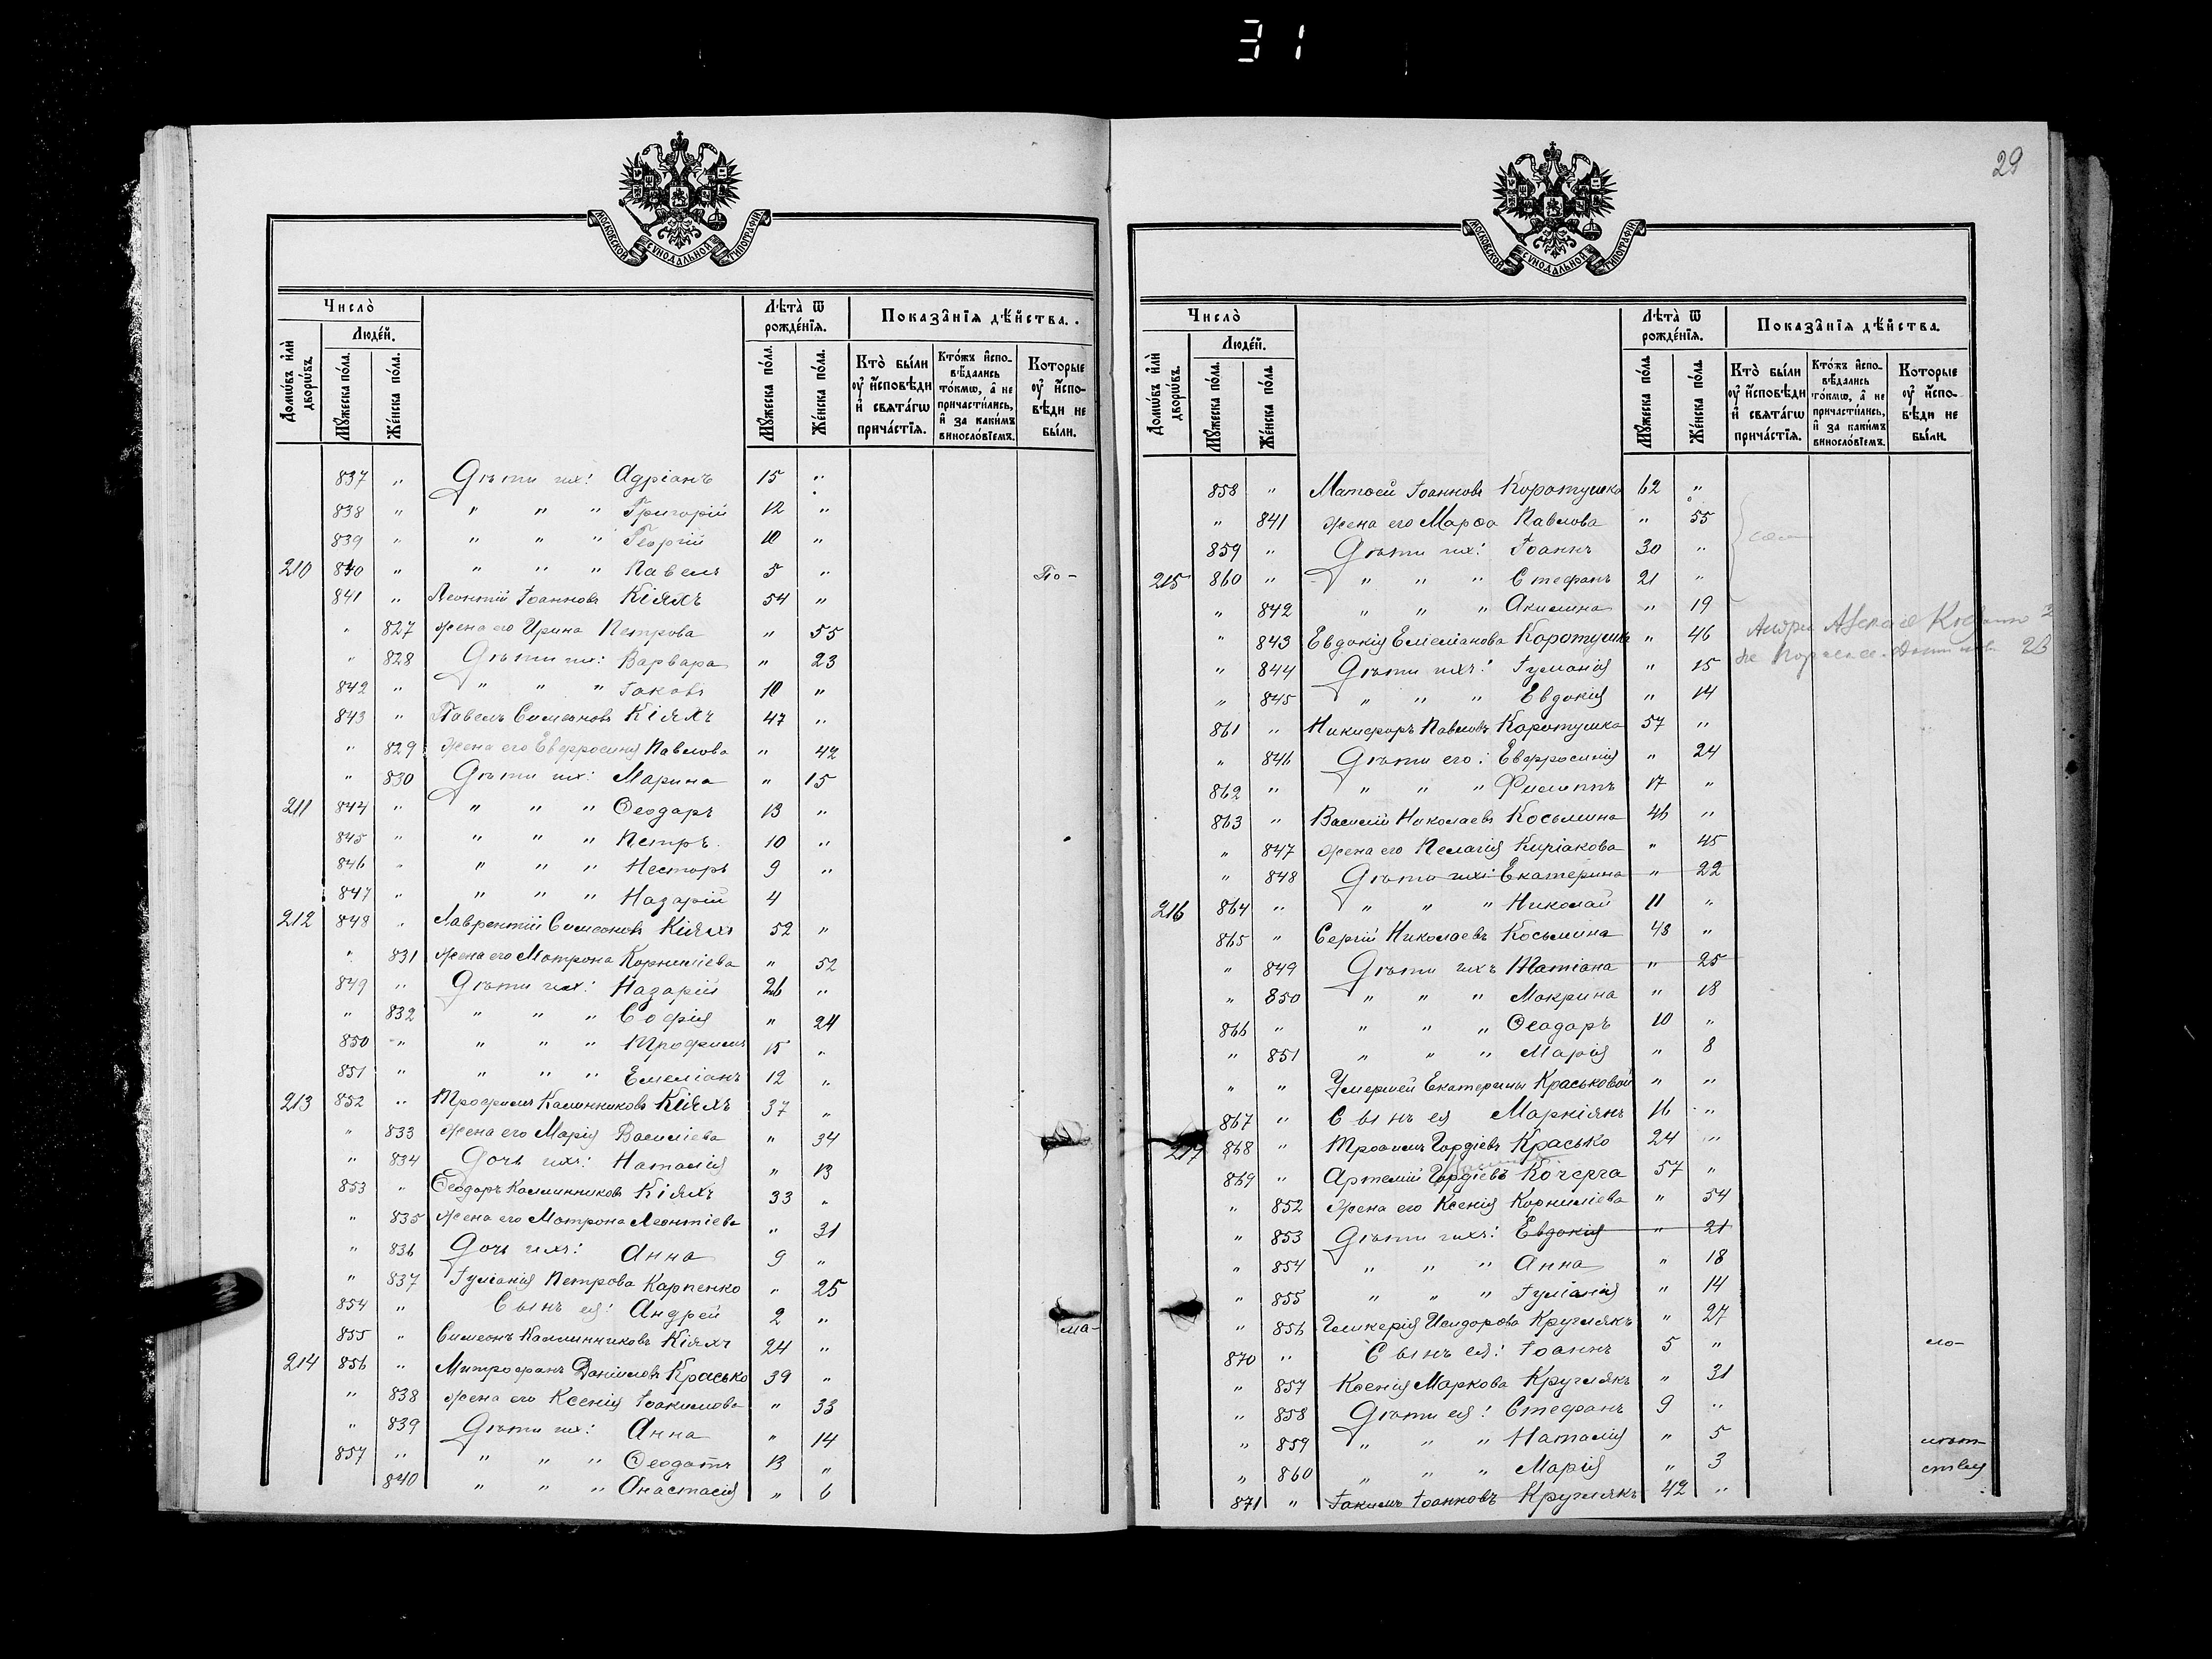 31
29
МОСКОВСКОЙ СУНОДАЛЬНОЙ ТИПОГРАФІИ
Число̀
Домѡ́въ и҆лѝ дворѡ́въ.
Люде́й.
Мꙋ́жеска по́ла.
Же́нска по́ла.
Лѣта̀ ѿ рожде́нїѧ.
Мꙋ́жеска по́ла.
Же́нска по́ла.
Показа̑нїѧ дѣ́йства.
Кто̀ бы́ли оу҆ и҆́сповѣди и҆ свѧта́гѡ прича́стїѧ.
Кто́жъ и҆спо-вѣ́дались то́кмѡ, а҆ не причасти́лись, и҆ за каки́мъ винosло́вїемъ.
Которые оу҆ и҆́спо-вѣди не бы́ли.
837 „ Дѣти их: Адріанъ 15 „
838 „ „ „ „ Григорій 12 „
839 „ „ „ „ Георгій 10 „
210 840 „ „ „ „ Павелъ 5 „ По-
841 „ Леонтій Іоанновъ Кіяхъ 54 „
„ 827 жена его Ирина Петрова „ 55
„ 828 Дѣти их: Варвара „ 23
842 „ „ „ „ Іаковъ 10 „
843 „ Павелъ Симеоновъ Кіяхъ 47 „
„ 829 жена его Евфросинія Павлова „ 42
„ 830 Дѣти их: Марина „ 15
211 844 „ „ „ „ Ѳеодоръ 13 „
845 „ „ „ „ Петръ. 10 „
846 „ „ „ „ Несторъ 9 „
847 „ „ „ „ Назарій 4
212 848 „ Лаврентій Симеоновъ Кіяхъ 52 „
„ 831 жена его Мотрона Корниліева „ 52
849 „ Дѣти их: Назарій 26 „
„ 832 „ „ „ Софія „ 24
850 „ „ „ „ Трофимъ 15 „
851 „ „ „ „ Емеліанъ 12 „
213 852 „ Трофимъ Калинниковъ Кіяхъ 37 „
„ 833 жена его Марія Василіева „ 34
„ 834 Дочь ихъ: Наталія „ 13
853 „ Ѳеодоръ Калинниковъ Кіяхъ 33 „
„ 835 жена его Мотрона Леонтіева „ 31
„ 836 Дочь ихъ: Анна 9 „
„ 837 Іуліанія Петрова Карпенко „ 25
854 „ Сынъ ея: Андрей 2 „ ма-
855 „ Симеонъ Калинниковъ Кіяхъ 24 „
214 856 „ Митрофанъ Даніиловъ Красько 39 „
„ 838 жена его Ксенія Іоакимова „ 33
„ 839 Дѣти их: Анна „ 14
857 „ „ „ „ Ѳеодотъ 13 „
840 „ „ „ Анастасія „ 6
МОСКОВСКОЙ СУНОДАЛЬНОЙ ТИПОГРАФІИ
Число̀
Домѡ́въ и҆лѝ дворѡ́въ.
Люде́й.
Мꙋ́жеска по́ла.
Же́нска по́ла.
Лѣта̀ ѿ рожде́нїѧ.
Мꙋ́жеска по́ла.
Же́нска по́ла.
Показа̑нїѧ дѣ́йства.
Кто̀ бы́ли оу҆ и҆́сповѣди и҆ свѧта́гѡ прича́стїѧ.
Кто́жъ и҆спо-вѣ́дались то́кмѡ, а҆ не причасти́лись, и҆ за каки́мъ винosло́вїемъ.
Которые оу҆ и҆́спо-вѣди не бы́ли.
858 „ Матѳей Іоанновъ Коротушка 62 „
„ 841 жена его Марѳа Павлова „ 55
859 „ Дѣти их: Іоаннъ 30 „
215 860 „ „ „ „ Стефанъ 21 „
„ 842 „ „ „ Акилина „ 19
„ 843 Евдокія Емеліанова Коротушка „ 46
„ 844 Дѣти ихъ: Іуліанія „ 15
„ 845 „ „ „ Евдокія „ 14
861 „ Никифоръ Павловъ Коротушка 57 „
„ 846 Дѣти его: Евфросинія „ 24
862 „ „ „ „ Филиппъ 17 „
863 „ Василій Николаевъ Косьмина 46 „
„ 847 жена его Пелагія Киріакова „ 45
„ 848 Дѣти ихъ: Екатерина „ 22
216 864 „ „ „ „ Николай 11 „
865 „ Сергій Николаевъ Косьмина 48 „
„ 849 Дѣти ихъ Татіана „ 25
„ 850 „ „ „ Макрина „ 18
866 „ „ „ „ Ѳеодоръ 10 „
„ 851 „ „ „ Марія „ 8
„ „ Умершей Екатерины Краськовой „ „
867 „ Сынъ ея Маркіянъ 16 „
217 868 „ Трофимъ Гордіевъ Красько 24 „
869 „ Артемій Гордіевъ Кочерга 57 „
„ 852 жена его Ксенія Корниліева „ 54
„ 853 Дѣти ихъ: Евдокія „ 21
„ 854 „ „ „ Анна „ 18
„ 855 „ „ „ Іуліанія „ 14
„ 856 Гликерія Исидорова Круглякъ „ 27
870 „ Сынъ ея: Іоаннъ 5 „ ло-
„ 857 Ксенія Маркова Круглякъ „ 31
„ 858 Дѣти ея: Стефанъ 9 „
„ 859 „ „ „ Наталія „ 5 лѣт-
„ 860 „ „ „ Марія „ 3 ствія
871 „ Іакимъ Іоанновъ Круглякъ 42 „